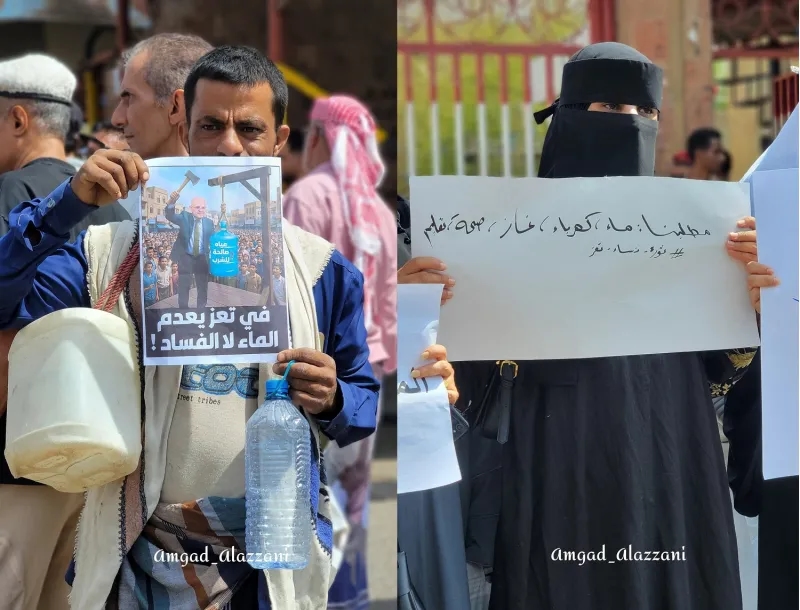 مياه
صالحة
للشرب
في تعز يعدم
الماء لا الفساد !
street tribes
Amgad_Alazzani
مطلبنا: ماء، كهرباء، غاز، صحة، تعليم
# ثورة - نساء - تعز
Amgad_Alazzani